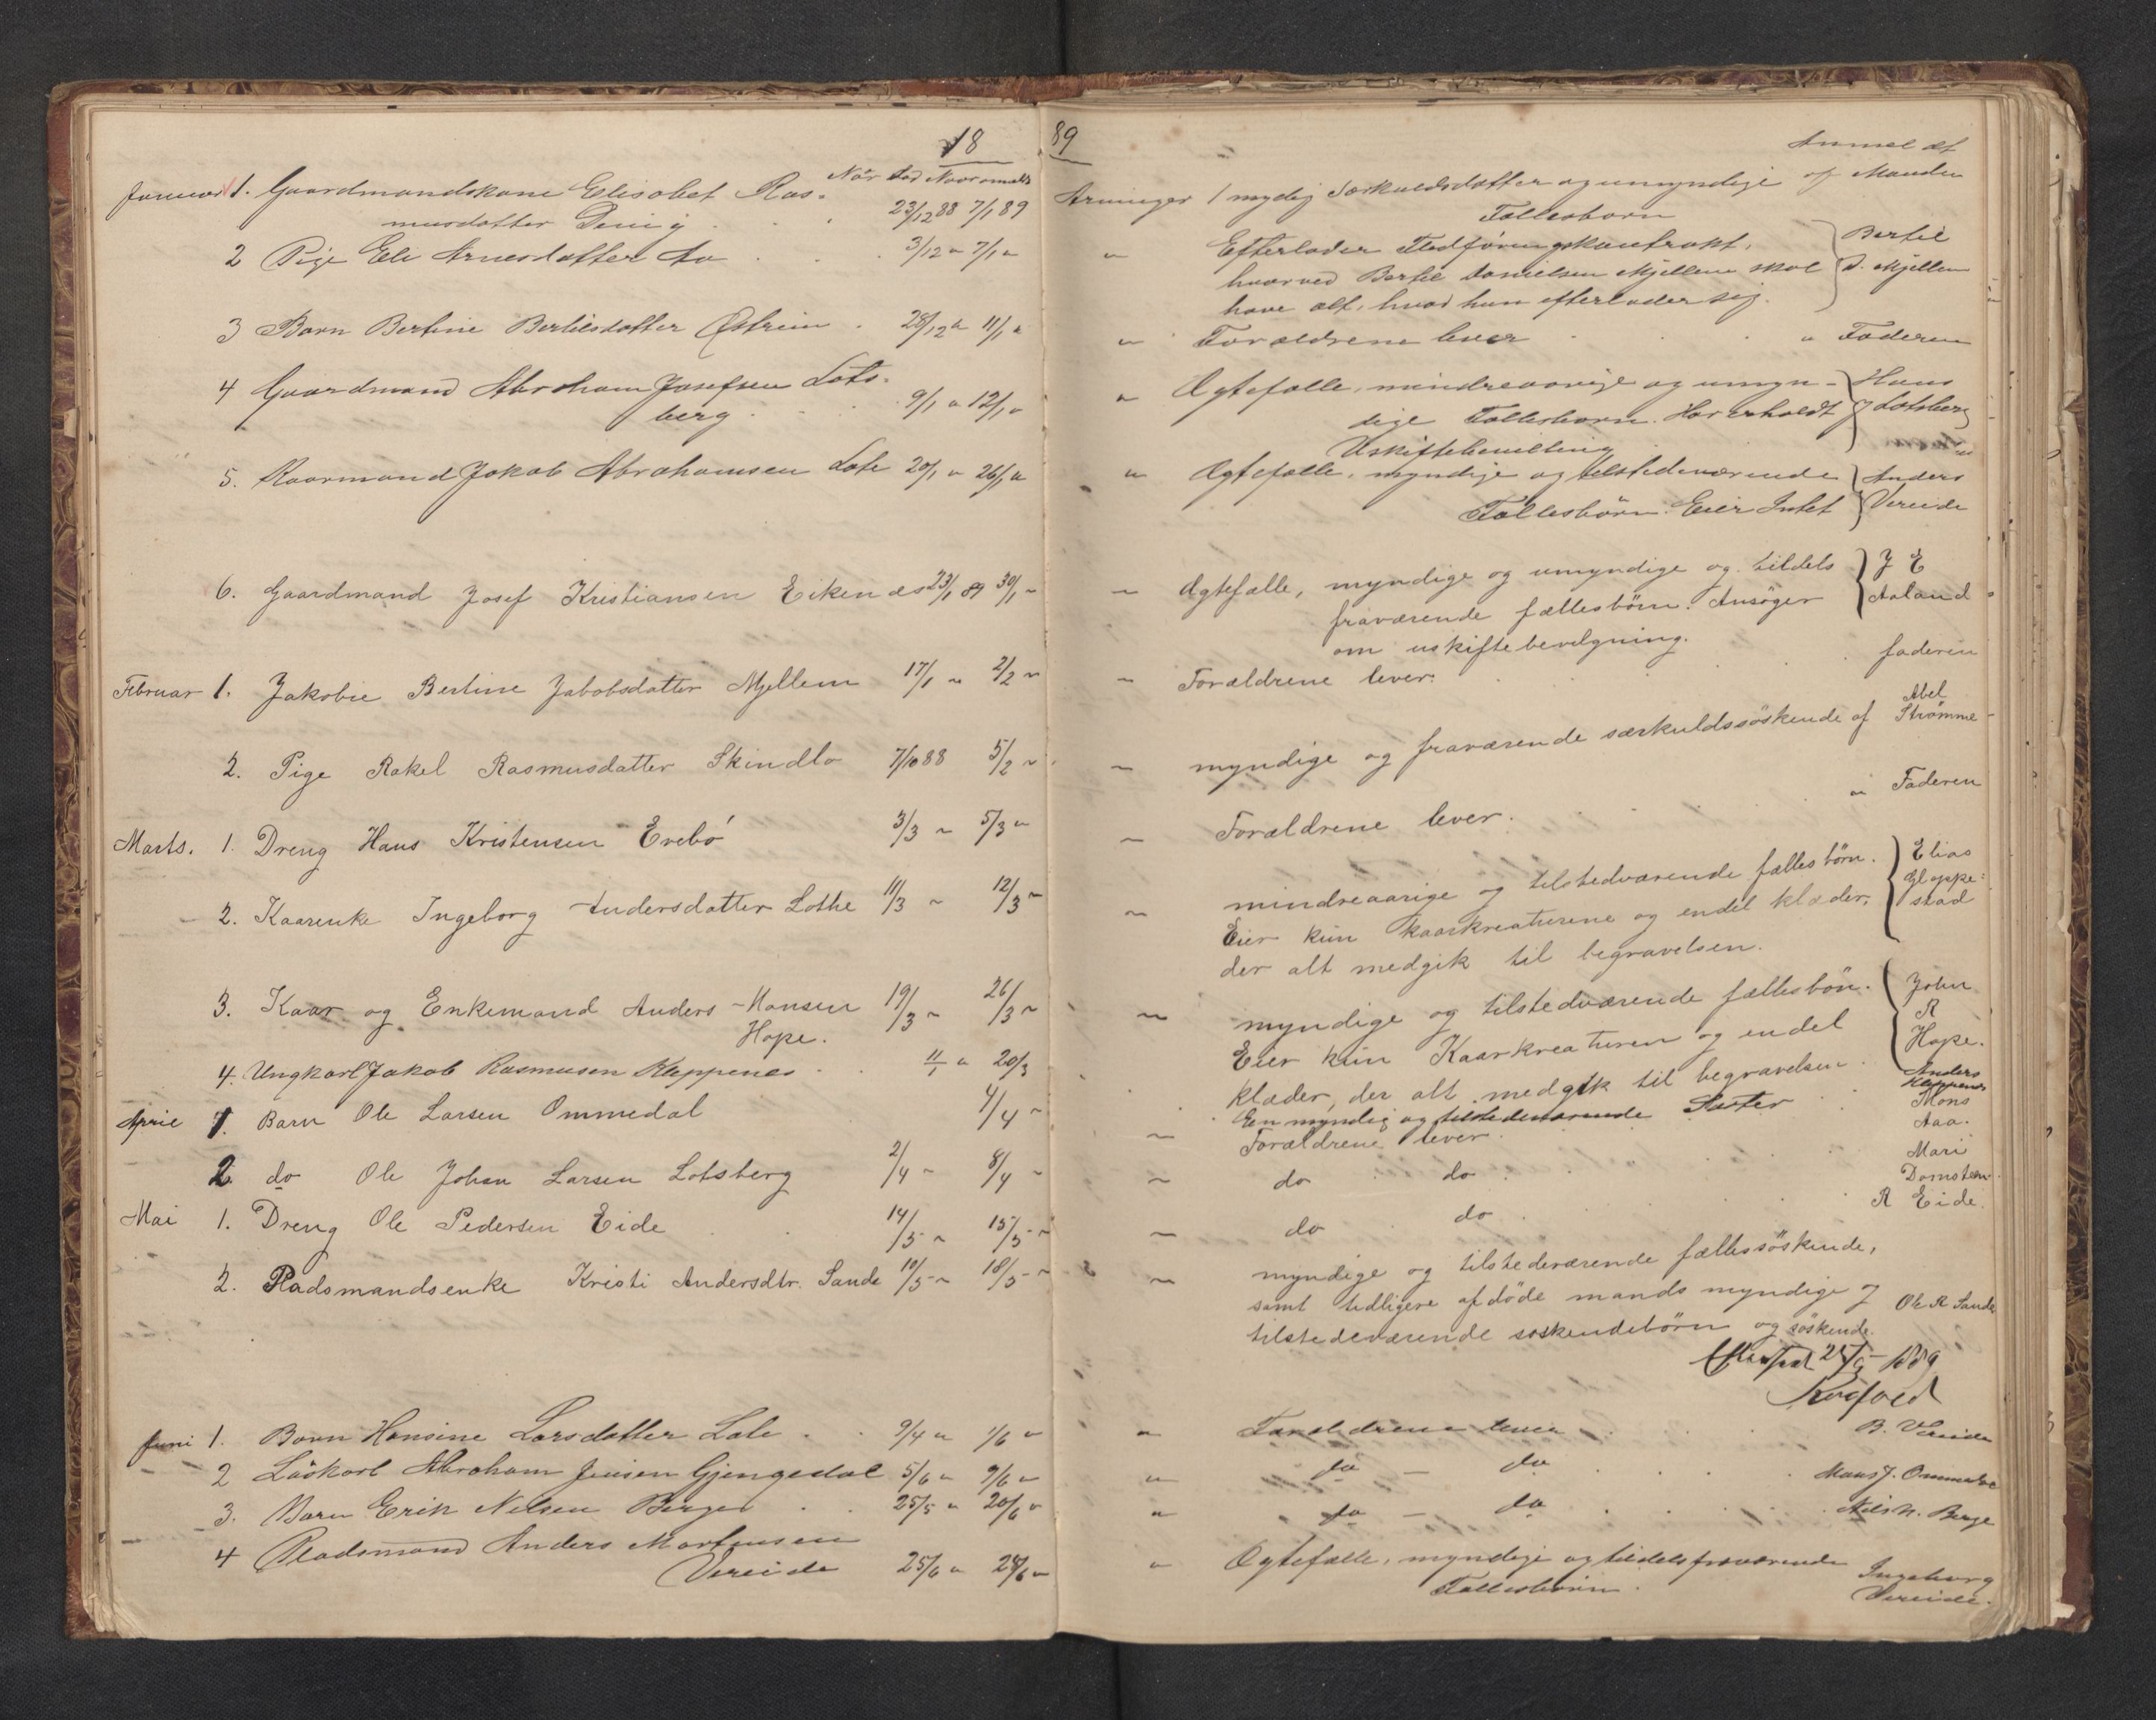 18
Januar 1. Gaardmandskone Elisabet Ras-
musdatter 23/12 88 7/1 89
2 Pige Eli Arnesdatter Aa 3/12 " 7/1 "
3 Barn Bertine Bertilsdatter Østrem 28/12 " 11/1 "
4 Gaardmand Abraham Josefsen Lots-
berg 9/1 " 12/1 "
5. Kaarmand Jakob Abrahamsen Lote 20/1 " 26/1 "
6. Gaardmand Josef Kristiansen Eikenæs 23/1 89 30/1 "
Februar 1. Jakobie Bertine Jakobsdatter Mjellem 17/1 " 2/2 "
2. Pige Rakel Rasmusdatter Skindlo 7/10 88 5/2 "
Marts. 1. Dreng Hans Kristensen Evebö 3/3 " 5/3 "
2. Kaarenke Ingeborg Andersdatter Lothe 11/3 " 12/3 "
3. Kaar og Enkemand Anders Hansen 19/3 " 26/3 "
Hope.
4. Ungkarl Jakob Rasmusen Kleppenes 11/1 " 20/3
April 1. Barn Ole Larsen Ommedal 4/4 "
2. do Ole Johan Larsen Lotsberg 2/4 " 8/4 "
Mai 1. Dreng Ole Pedersen Eide 14/5 " 15/5 "
2. Pladsmandsenke Kristi Andersdtr. Sande 10/5 " 18/5 "
Juni 1. Barn Hansine Larsdatter Lote 9/4 " 1/6 "
2 Löskarl Abraham Jensen Gjengedal 5/6 " 9/6 "
3. Barn Erik Nilsen Berge 25/5 " 20/6 "
4 Pladsmand Anders Mortensen
Vereide 25/6 " 28/6 "
89
Anmeldt
Arvinger 1 myndig Særkuldsdatter og umyndige af Manden
Fællesbørn
" Efterlader Fledføringskontrakt, Bertil
hvorved Bertil Danielsen Mjellem skal D. Mjellem
have alt, hvad hun efterlader sig.
" Forældrene lever " Faderen
" Ægtefælle, mindreaarige og umyn- Hans
dige Fællesbørn. Har erholdt J Lotsberg
Uskiftebevilling
" Ægtefælle, myndige og tilstedeværende Anders
Fællesbörn. Eier Intet Vereide
" Ægtefælle, myndige og umyndige og tildels J E
fraværende fællesbörn. Ansöger Aaland
om uskiftebevilgning.
" Forældrene lever. faderen
" myndige og fraværende særkuldssöskende af Abel
Strømme
" Forældrene lever. " Faderen
" mindreaarige og tilstedværende fællesbörn. Elias
Eier kun kaarkreaturene og endel klæder, Gloppe-
der alt medgik til begravelsen. stad
" myndige og tilstedværende fællesbön. John
Eier kun Kaarkreaturen og endel R
klæder, der alt medgik til begravelsen. Hope.
En myndig og tilstedeværende Søster Anders
Kleppenes
" Forældrene lever. Mons
Aaa.
" do do Mari
Domsten
" do do R Eide.
" myndige og tilstedeværende fællessöskende,
samt tidligere afdöde mands myndige J
tilstedeværende söskendebörn og söskende. Ole R Sande
1889
" Forældrene lever B. Vereide
" do – do Mons J. Ommedal
" do – do Nils N. Berge
" Ægtefælle, myndige og tildels fraværende Ingeborg
Fællesbörn Vereide.